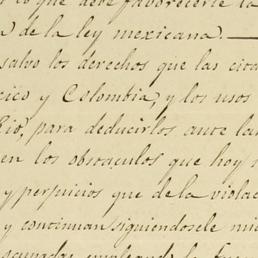 lo que debe favorecerle la
de la ley mexicana.—
salvo los derechos que las cita
xico y Colombia, y los usos
Rio, para deducirlos ante la
en los obstáculos que hoy
y perjuicios que de la viola
y continuan siguiendosele mie